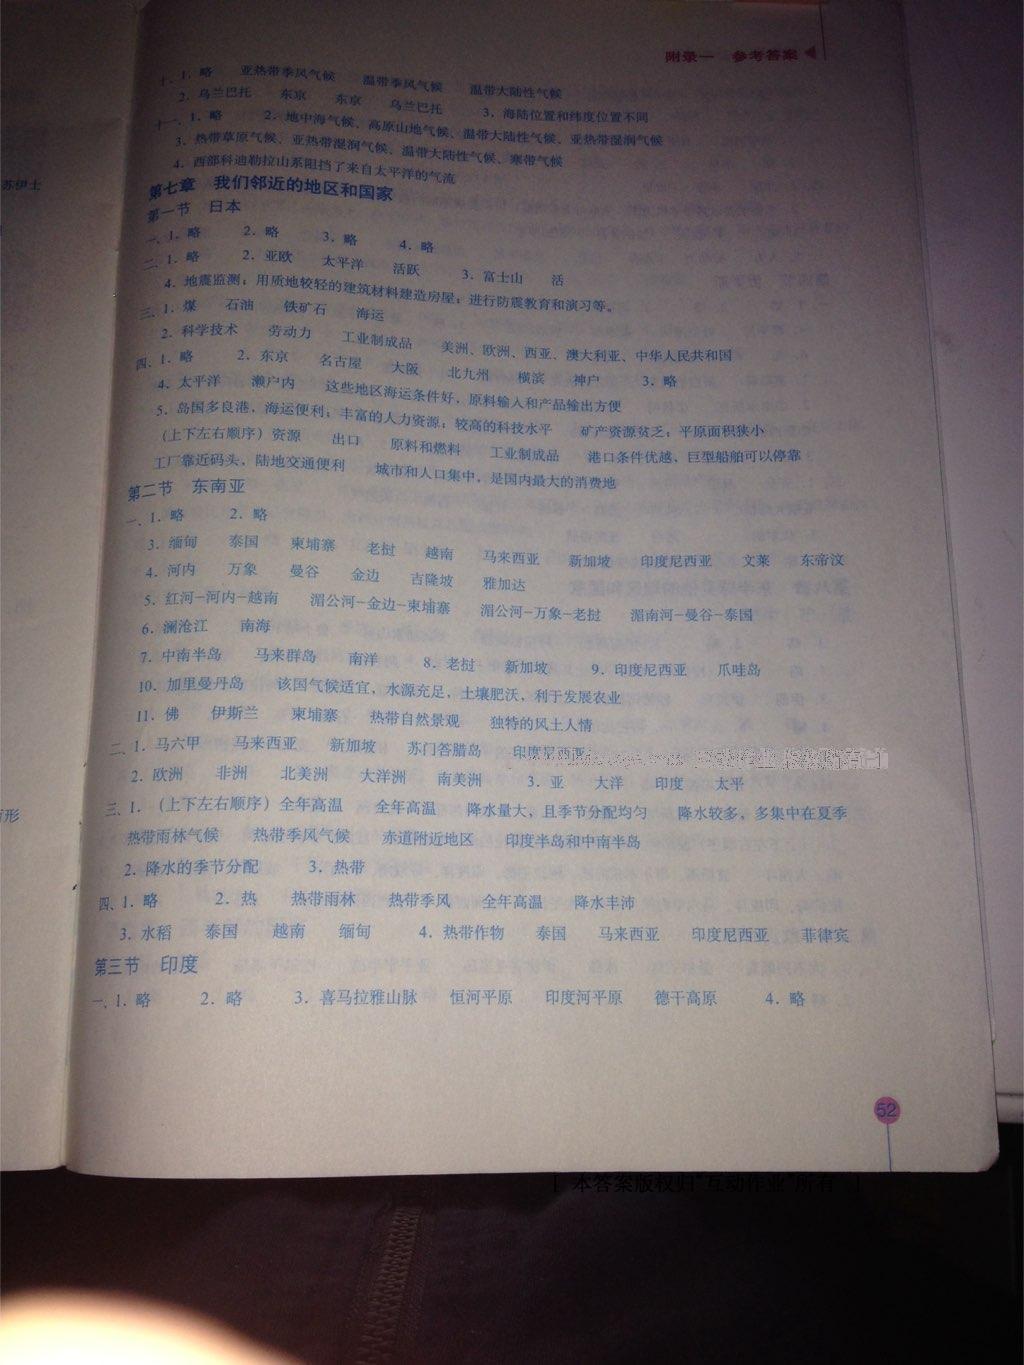 附录一 参考答案
十、1. 略 亚热带季风气候 温带季风气候 温带大陆性气候
2. 乌兰巴托 东京 东京 乌兰巴托 3. 海陆位置和纬度位置不同
十一、1. 略 2. 地中海气候、高原山地气候、温带大陆性气候、亚热带湿润气候
3. 热带草原气候、亚热带湿润气候、温带大陆性气候、寒带气候
4. 西部科迪勒拉山系阻挡了来自太平洋的气流
苏伊士
第七章 我们邻近的地区和国家
第一节 日本
一、1. 略 2. 略 3. 略 4. 略
二、1. 略 2. 亚欧 太平洋 活跃 3. 富士山 活
4. 地震监测；用质地较轻的建筑材料建造房屋；进行防震教育和演习等。
三、1. 煤 石油 铁矿石 海运
2. 科学技术 劳动力 工业制成品 美洲、欧洲、西亚、澳大利亚、中华人民共和国
四、1. 略 2. 东京 名古屋 大阪 北九州 横滨 神户 3. 略
4. 太平洋 濑户内 这些地区海运条件好，原料输入和产品输出方便
5. 岛国多良港，海运便利；丰富的人力资源；较高的科技水平 矿产资源贫乏；平原面积狭小
（上下左右顺序）资源 出口 原料和燃料 工业制成品 港口条件优越、巨型船舶可以停靠
工厂靠近码头，陆地交通便利 城市和人口集中，是国内最大的消费地
第二节 东南亚
一、1. 略 2. 略
3. 缅甸 泰国 柬埔寨 老挝 越南 马来西亚 新加坡 印度尼西亚 文莱 东帝汶
4. 河内 万象 曼谷 金边 吉隆坡 雅加达
5. 红河-河内-越南 湄公河-金边-柬埔寨 湄公河-万象-老挝 湄南河-曼谷-泰国
6. 澜沧江 南海
7. 中南半岛 马来群岛 南洋 8. 老挝 新加坡 9. 印度尼西亚 爪哇岛
10. 加里曼丹岛 该国气候适宜，水源充足，土壤肥沃，利于发展农业
11. 佛 伊斯兰 柬埔寨 热带自然景观 独特的风土人情
二、1. 马六甲 马来西亚 新加坡 苏门答腊岛 印度尼西亚
2. 欧洲 非洲 北美洲 大洋洲 南美洲 3. 亚 大洋 印度 太平
三、1. （上下左右顺序）全年高温 全年高温 降水量大，且季节分配均匀 降水较多，多集中在夏季
热带雨林气候 热带季风气候 赤道附近地区 印度半岛和中南半岛
2. 降水的季节分配 3. 热带
四、1. 略 2. 热 热带雨林 热带季风 全年高温 降水丰沛
3. 水稻 泰国 越南 缅甸 4. 热带作物 泰国 马来西亚 印度尼西亚 菲律宾
第三节 印度
一、1. 略 2. 略 3. 喜马拉雅山脉 恒河平原 印度河平原 德干高原 4. 略
52
[ 本答案版权归“互动作业”所有 ]